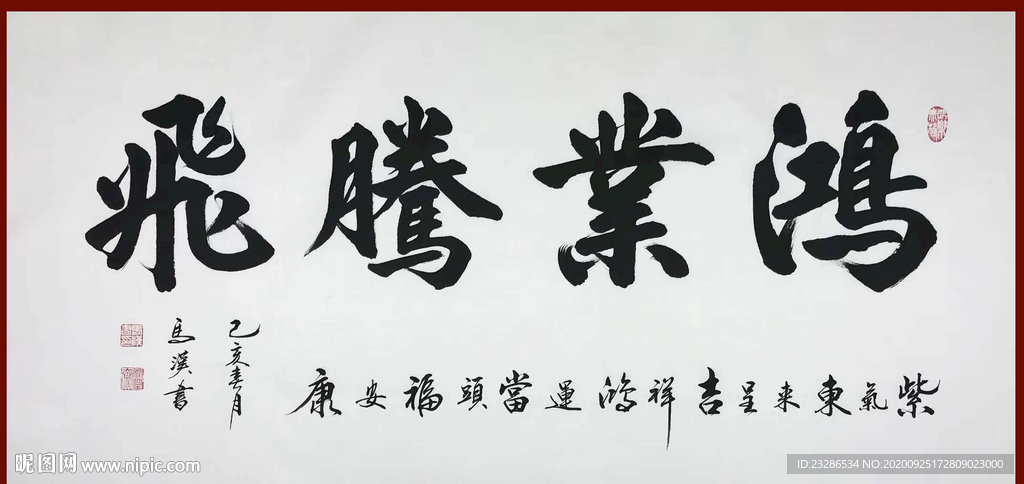 鴻業騰飛
紫氣東来呈吉祥鴻運當頭福安康
己亥春月
馬漢書
昵图网 www.nipic.com
ID:23286534 NO:20200925172809023000